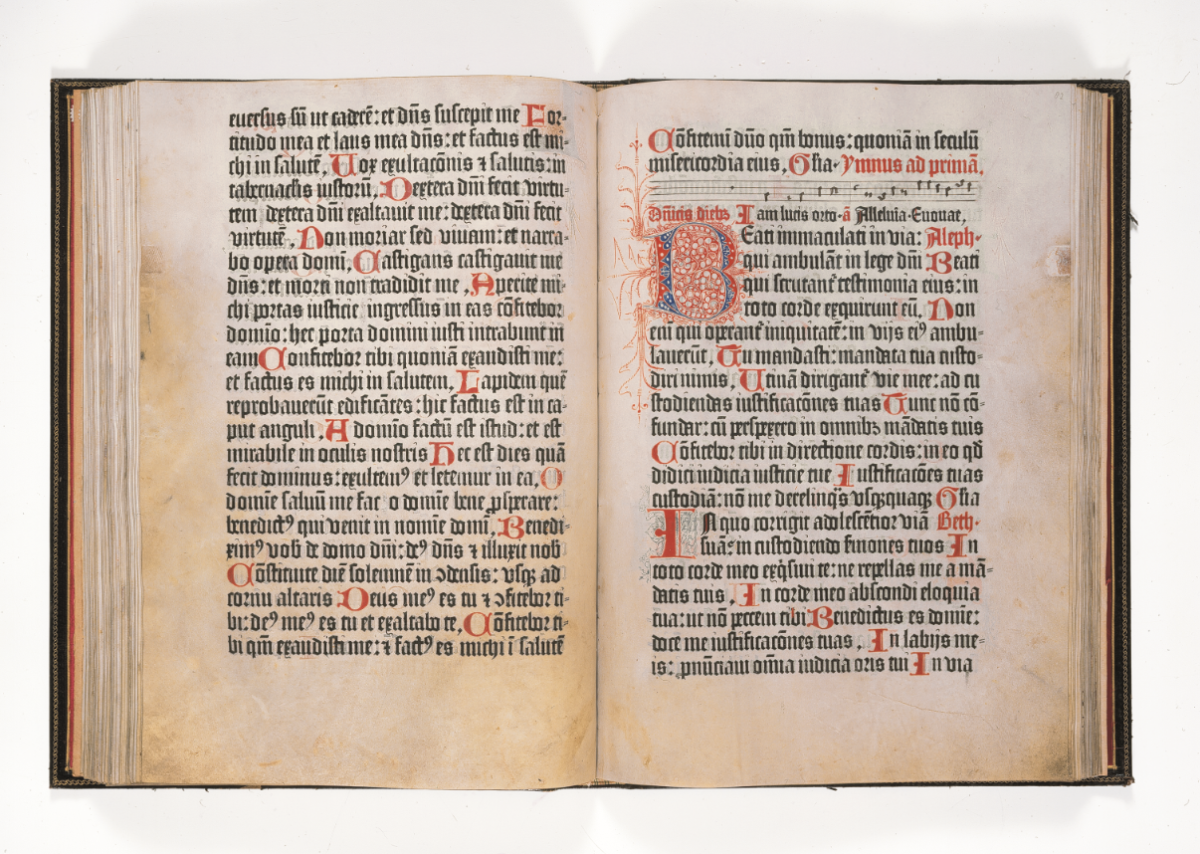 euersus sū ut caderē: et dn̄s suscepit me For-
titudo mea et laus mea dn̄s: et factus est mi-
chi in salutē, Vox exultacōnis ⁊ salutis: in
tabernaclīs iustorū, Dextera dn̄i fecit virtu-
tem dextera dn̄i exaltauit me: dextera dn̄i fecit
virtutē, Non moriar sed viuam: et narra-
bo opera domī, Castigans castigauit me
dn̄s: et morti non tradidit me, Aperite mi-
chi portas iusticie ingressus in eas cōfitebor
domīo: hec porta domini iusti intrabunt in
eam Confitebor tibi quoniā exaudisti me:
et factus es michi in salutem, Lapidem quē
reprobauerūt edificātes: hic factus est in ca-
put anguli, A domīo factū est istud: et est
mirabile in oculis nostris Hec est dies quā
fecit dominus: exultemꝰ et letemur in ea, O
domīe saluū me fac o domīe bene ꝓsperare:
benedictꝰ qui venit in nomīe domī, Benedi-
ximꝰ vob̄ de domo dn̄i: deꝰ dn̄s ⁊ illuxit nob̄
Cōstituite diē solemnē in ↄdensis: vsqꝫ ad
cornu altaris Deus meꝰ es tu ⁊ ↄfitebor ti-
bi: deꝰ meꝰ es tu et exaltabo te, Cōfitebor ti-
bi qm̄ exaudisti me: ⁊ factꝰ es michi ī salutē
Cōfitemī dn̄o qm̄ bonus: quoniā in seculū
misericordia eius, Gl̄ia. Ymnus ad primā.
Dn̄icis diebꝫ Iam lucis orto. ā Alleluia. Euouae,
BEati immaculati in via: Aleph.
qui ambulāt in lege dn̄i Beati
qui scrutant᷑ testimonia eius: in
toto corde exquirunt eū, Non
em̄ qui operant᷑ iniquitatē: in vijs eiꝰ ambu-
lauerūt, Tu mandasti: mandata tua custo-
diri nimis, Utinā dirigant᷑ vie mee: ad cu
stodiendas iustificacōnes tuas Tunc nō cō-
fundar: cū perspexero in omnibꝫ mādatis tuis
Cōfitebor tibi in directione cordis: in eo qd̄
didici iudicia iusticie tue Iustificacōnes tuas
custodiā: nō me derelinqꝰs vsqꝫquaqꝫ Gl̄ia
IN quo corrigit adolescētior viā Beth.
suā: in custodiendo s̄mones tuos In
toto corde meo exq̇siui te: ne repellas me a mā-
datis tuis, In corde meo abscondi eloquia
tua: ut nō peccem tibi Benedictus es domīe:
doce me iustificacōnes tuas, In labijs me-
is: ꝓnūciaui om̄ia iudicia oris tui In via